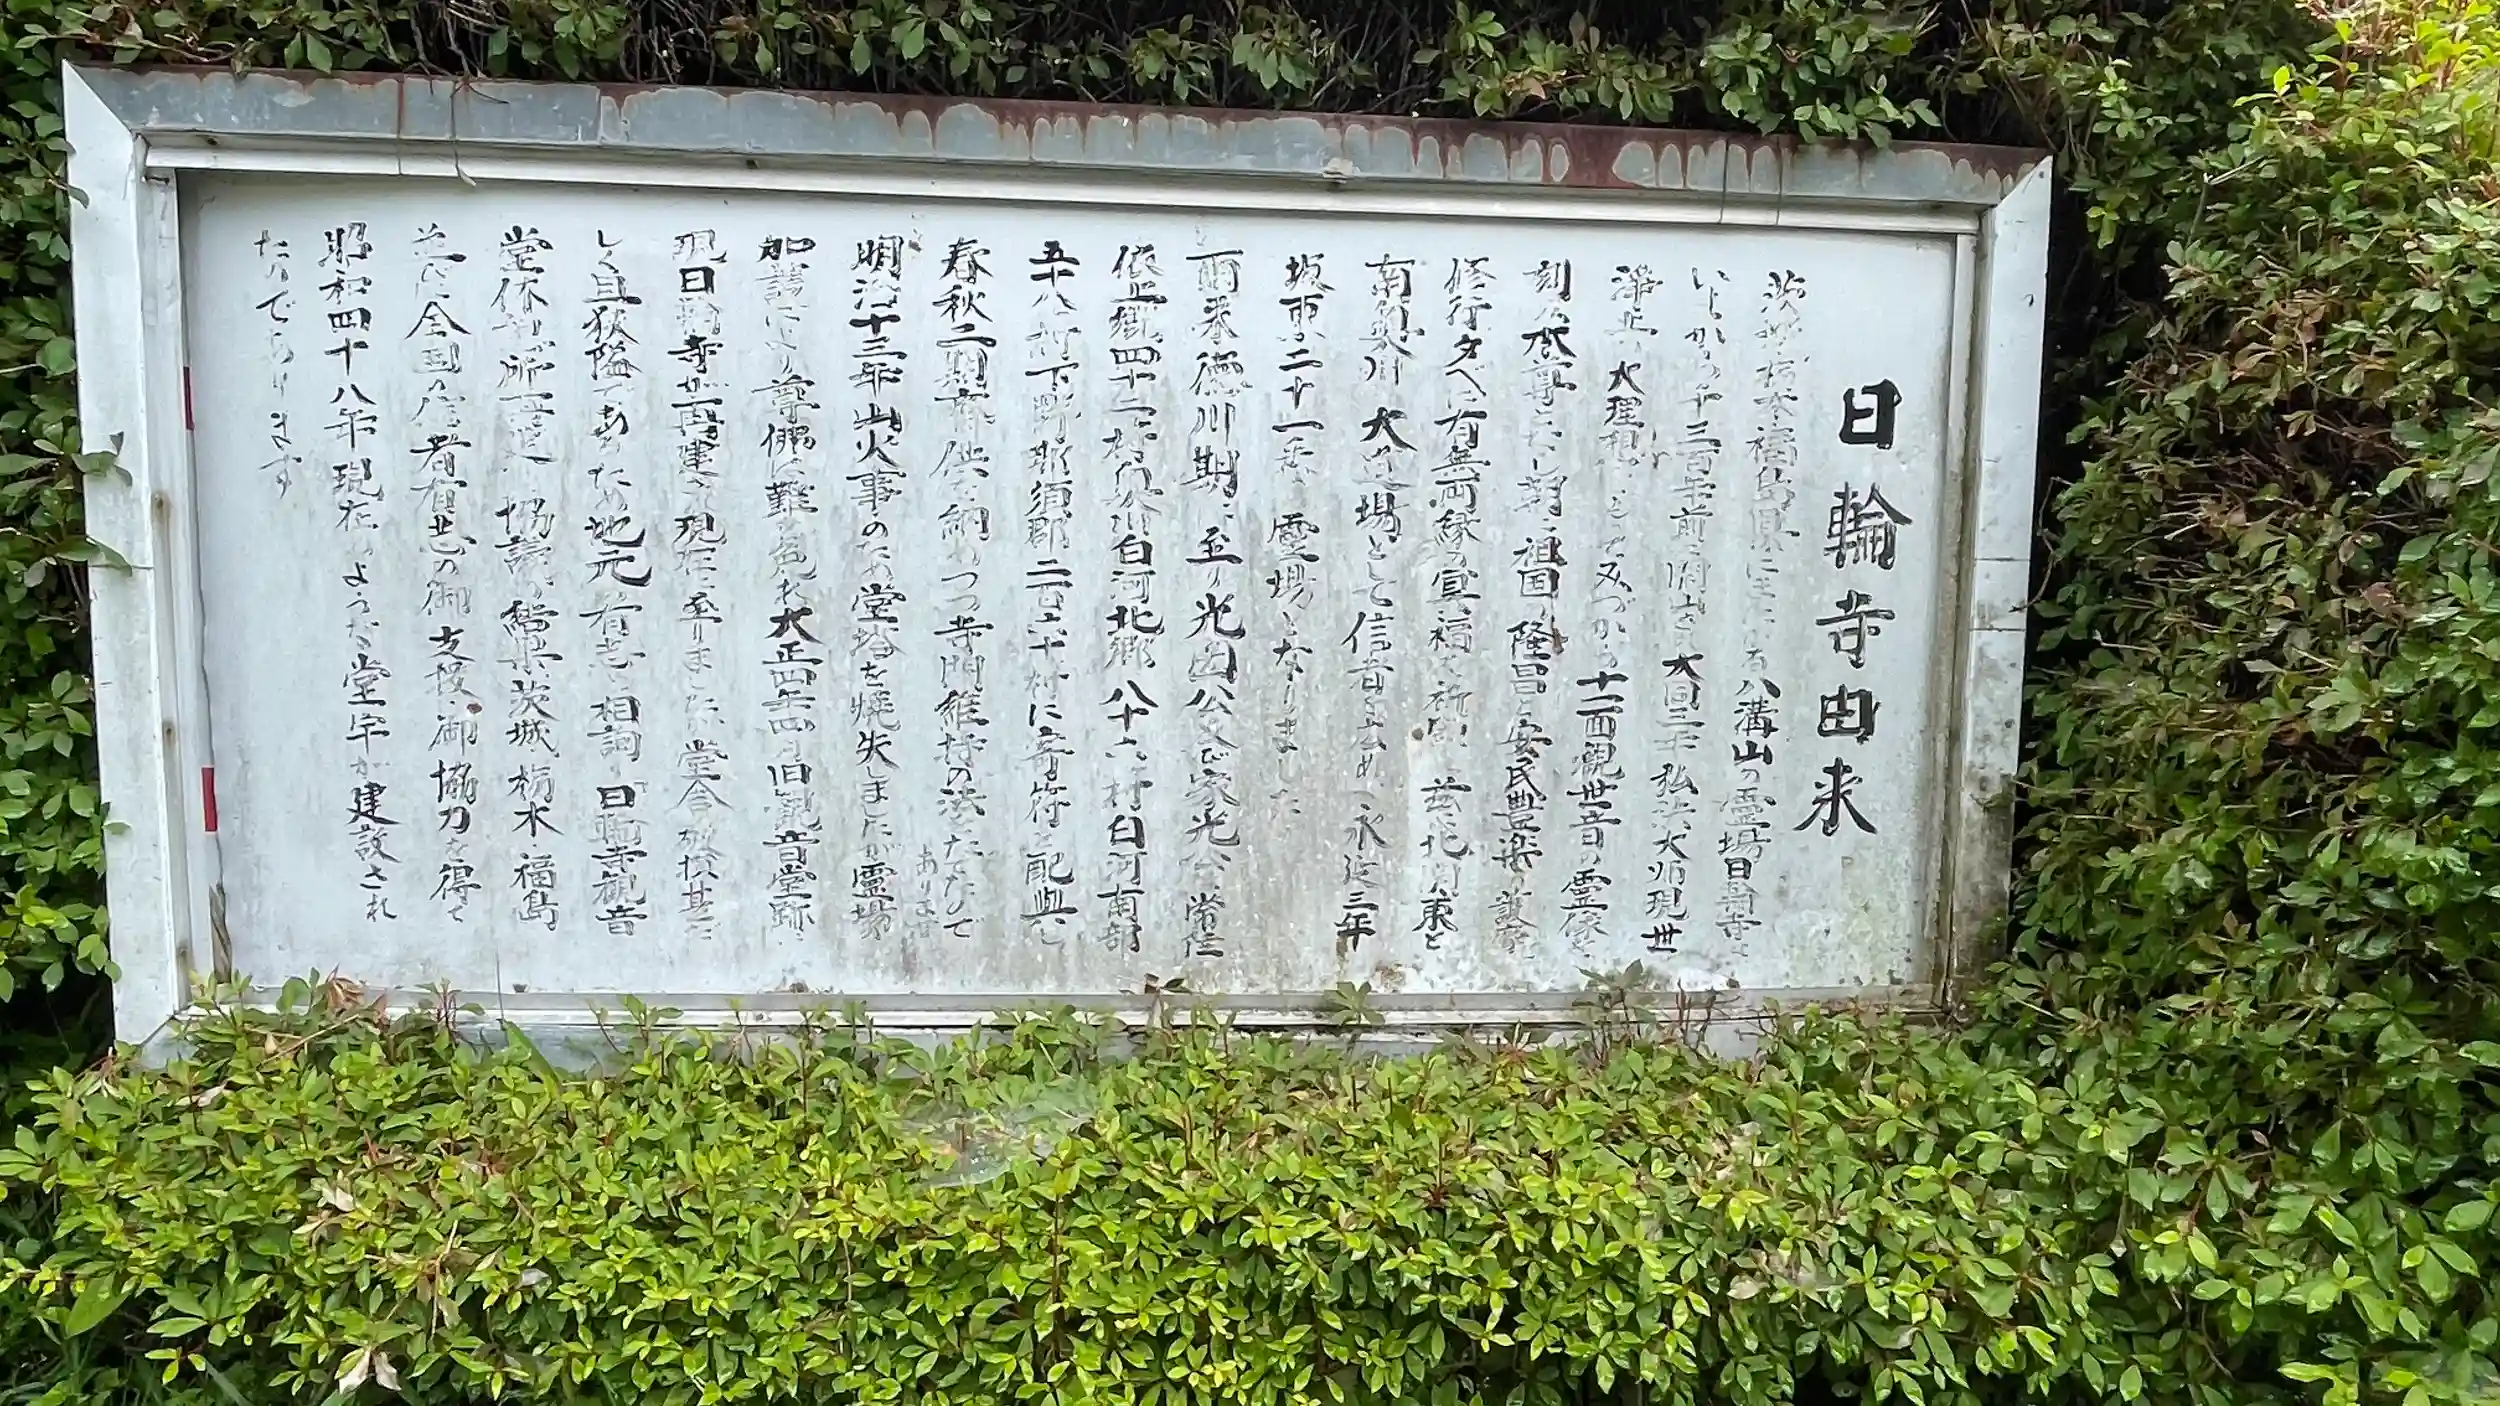 日輪寺由来
茨城栃木福島県にまたがる八溝山の霊場日輪寺は
いまから千三百年前に開山され大同二年弘法大師現世
浄土の大理想をもってみづから十一面観世音の霊像を
刻み本尊となし朝に祖国の隆昌と安民豊楽の護念を
修行夕べに有無両縁の冥福を祈願し茲に北関東と
南奥州の大道場として信者を広め永延三年
坂東二十一番の霊場となりました
爾来徳川期に至り光圀公又で家光公常陸
依上郷四十二ヶ村奥州白河北郷八十六ヶ村白河南部
五十八ヶ村下野那須郡二百六十村に寄符を配興し
春秋二期斉供を納めつつ寺門維持の法をたてたので
あります
明治十三年山火事のため堂塔を焼失しましたが霊場
加護により尊佛は難を免れ大正四年四月旧観音堂跡に
現日輪寺が再建され現在に至りましたが堂舎破損甚だ
しく且狭隘であるため地元の有志が相詢り日輪寺観音
堂体制が所一変と協議の結果茨城栃木福島
並に全国の信者有志の御支援御協力を得て
昭和四十八年現在のようだ堂宇が建設され
たのであります